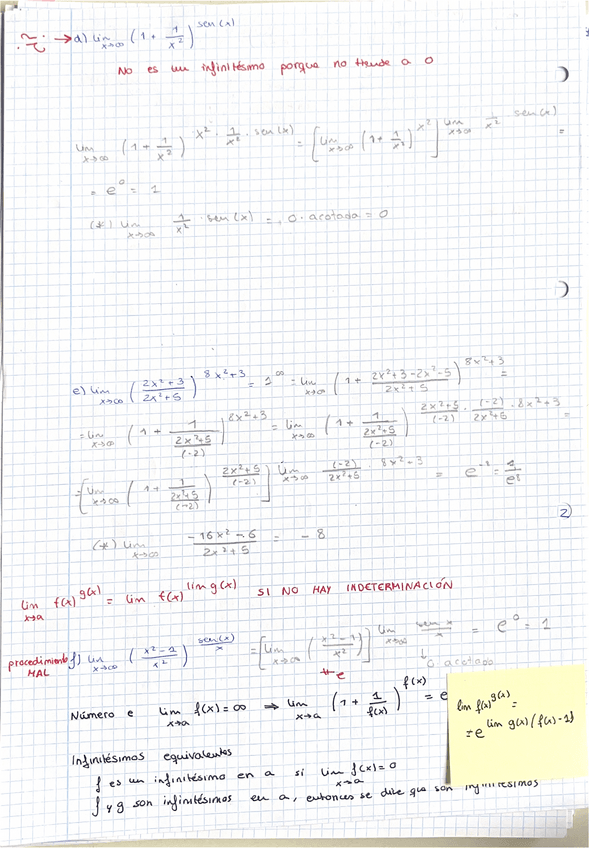 → d) lim x→∞ (1 + 1/x²)^sen(x)
No es un infinitésimo porque no tiende a 0
lim x→∞ (1 + 1/x²)^(x² · 1/x² · sen(x)) = [lim x→∞ (1 + 1/x²)^x²]^(lim x→∞ 1/x² sen(x)) =
= e⁰ = 1
(*) lim x→∞ 1/x² · sen(x) = 0 · acotada = 0
e) lim x→∞ ((2x²+3)/(2x²+5))^(8x²+3) = 1^∞ = lim x→∞ (1 + (2x²+3-2x²-5)/(2x²+5))^(8x²+3) =
= lim x→∞ (1 + 1/((2x²+5)/(-2)))^(8x²+3) = lim x→∞ (1 + 1/((2x²+5)/(-2)))^((2x²+5)/(-2) · (-2)/(2x²+5) · 8x²+3) =
= [lim x→∞ (1 + 1/((2x²+5)/(-2)))^((2x²+5)/(-2))]^(lim x→∞ (-2)/(2x²+5) · 8x²+3) = e⁻⁸ = 1/e⁸
2)
(*) lim x→∞ (-16x²-6)/(2x²+5) = -8
lim x→a f(x)^g(x) = lim f(x)^lim g(x) SI NO HAY INDETERMINACIÓN
procedimiento MAL
f) lim x→∞ ((x²-1)/x²)^(sen(x)/x) = [lim x→∞ ((x²-1)/x²)]^(lim x→∞ sen x/x) = e⁰ = 1
≠ e
↓ 0 acotado
Número e lim x→a f(x) = ∞ ⇒ lim x→a (1 + 1/f(x))^f(x) = e
lim f(x)^g(x) =
= e^lim g(x)(f(x)-1)
Infinitésimos equivalentes
f es un infinitésimo en a si lim x→a f(x) = 0
f y g son infinitésimos en a, entonces se dice que son infinitésimos